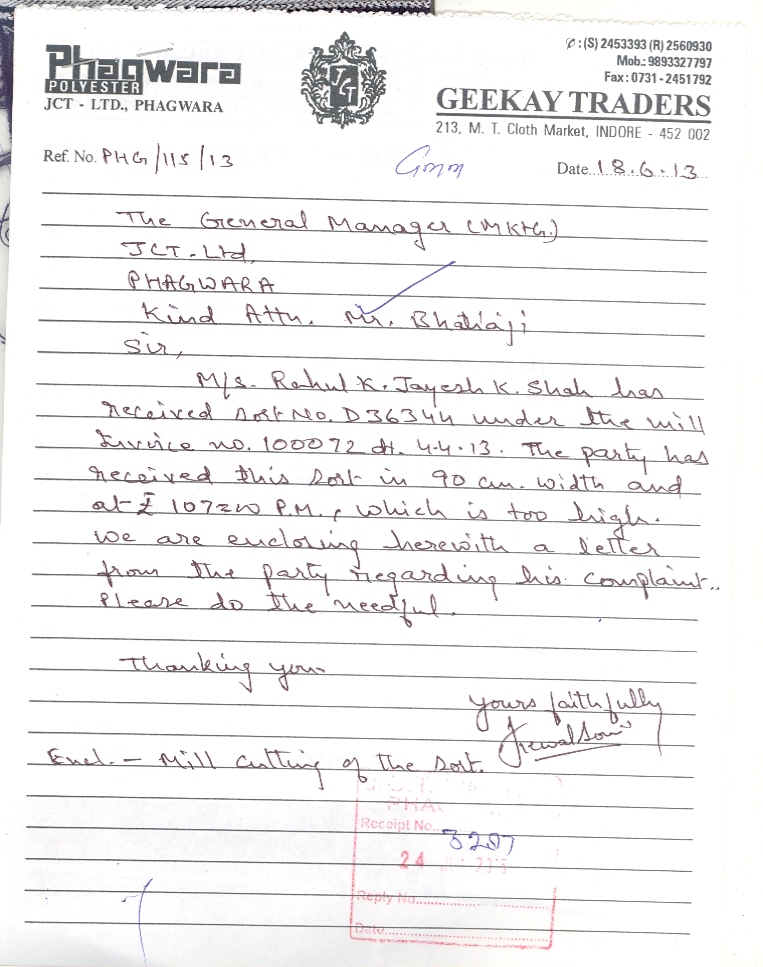 ✆ : (S) 2453393 (R) 2560930
Mob.: 9893327797
Fax : 0731 - 2451792
Phagwara
POLYESTER
JCT - LTD., PHAGWARA
JCT
GEEKAY TRADERS
213, M. T. Cloth Market, INDORE - 452 002
Ref. No. PHG/115/13
Date. 18.6.13
The General Manager (MKTG.)
JCT. Ltd.
PHAGWARA
Kind Attn. Mr. Bhatiaji
Sir,
M/s. Rahul K. Jayesh K. Shah has
received sort No. D36344 under the mill
Invoice no. 100072 dt. 4.4.13. The party has
received this sort in 90 cm. width and
at P.M., which is too high.
we are encloring herewith a letter
from the party regarding his complaint..
Please do the needful.
Thanking you
Yours faithfully
Encl. - Mill cutting of the sort.
PHA
Receipt No. 3207
24
Reply No.
Date